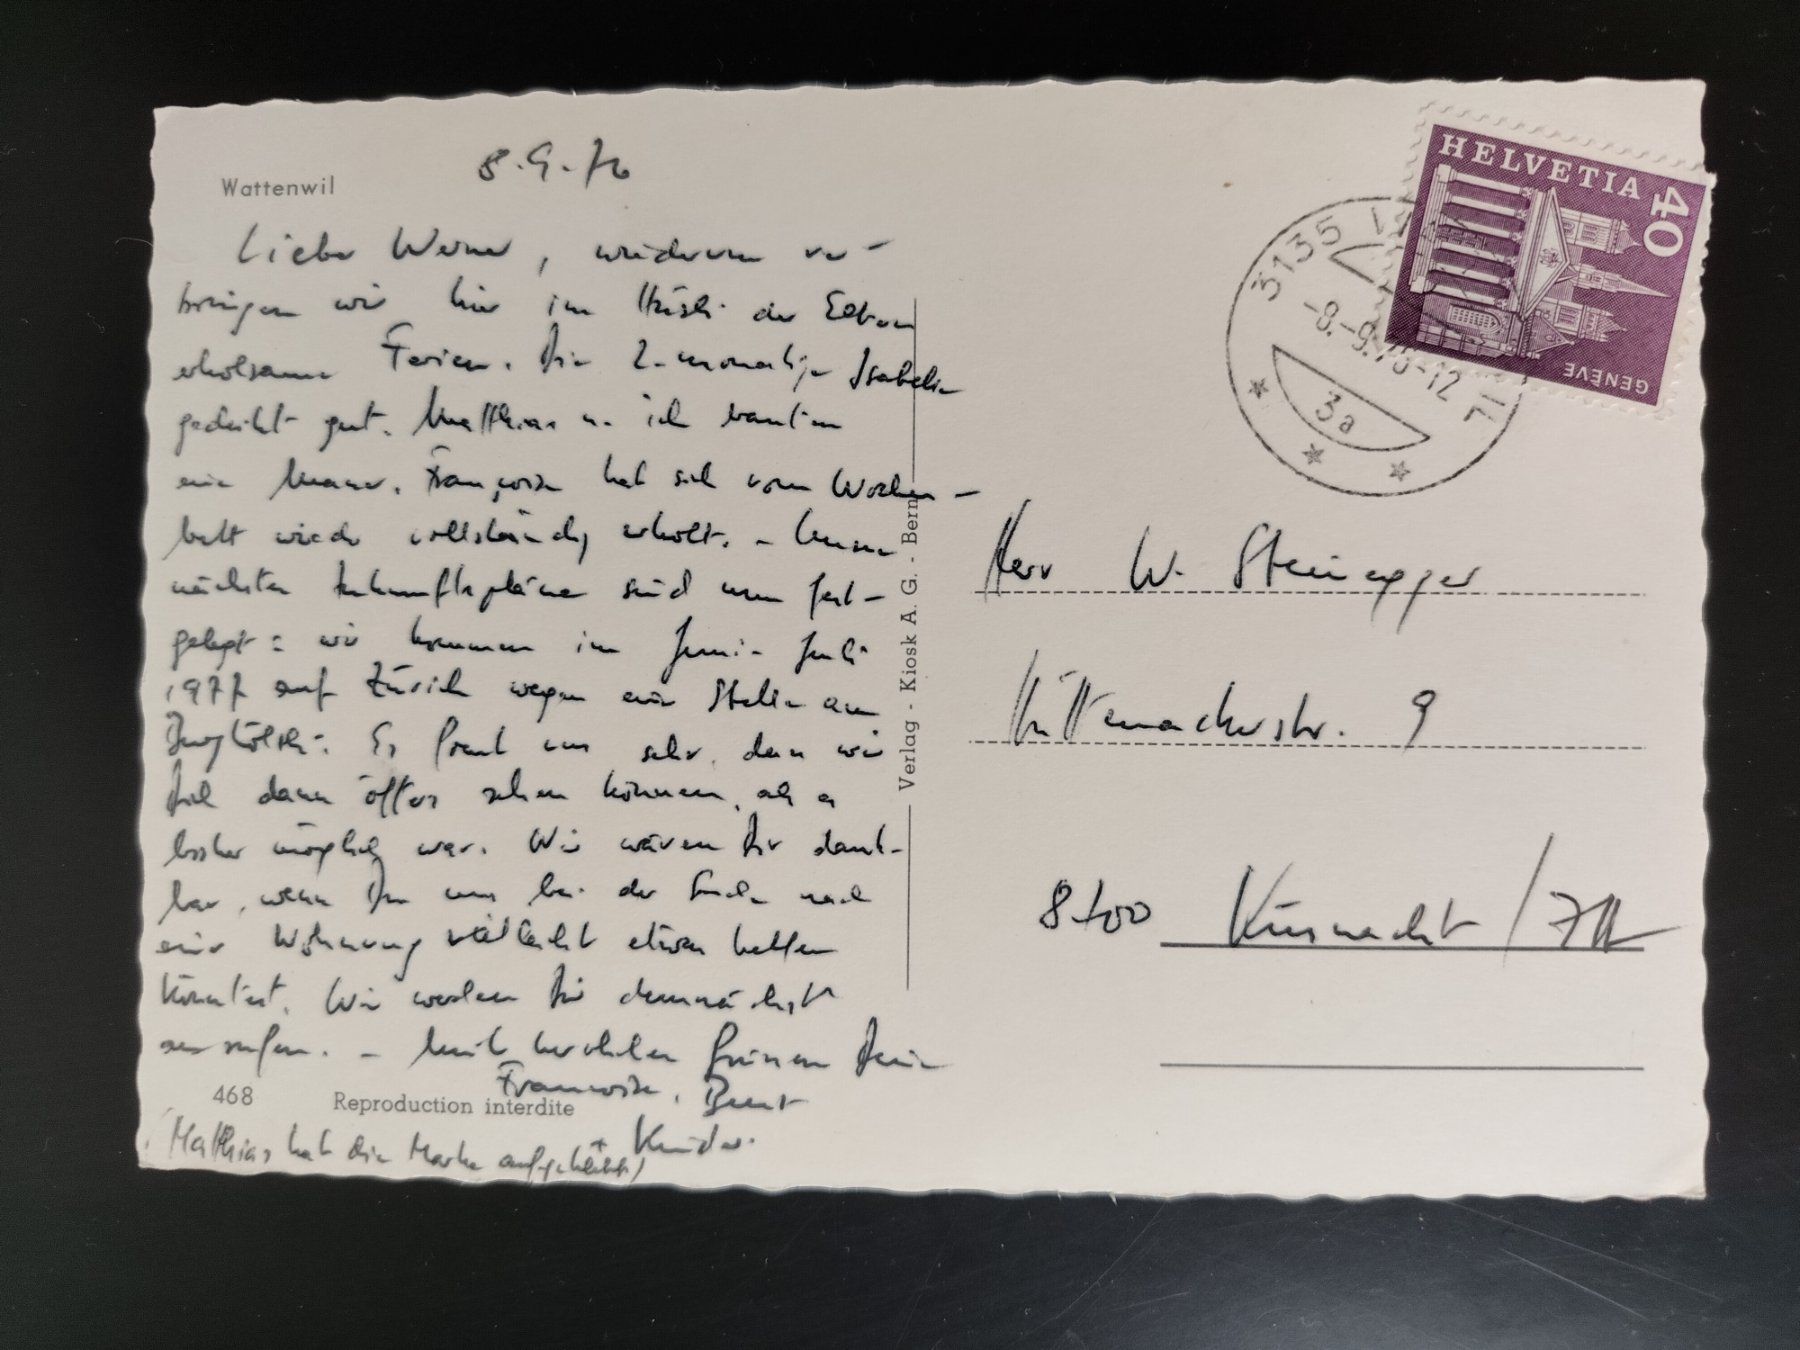 Wattenwil
8.9.76
Lieber Werner, wiederum ver-
bringen wir hier im Hüsli der Eltern
erholsame Ferien. Die 2-monatige Isabelle
gedeiht gut. Matthias u. ich bauten
eine Mauer. Françoise hat sich vom Wochen-
bett wieder vollständig erholt. – Unsere
nächsten Zukunftspläne sind nun fest-
gelegt: wir kommen im Juni-Juli
1977 auf Zürich wegen einer Stelle am
Burghölzli. Es freut uns sehr, dass wir
Dich dann öfters sehen können, als es
bisher möglich war. Wir wären Dir dank-
bar, wenn Du uns bei der Suche nach
einer Wohnung vielleicht etwas helfen
könntest. Wir werden Dir demnächst
anrufen. – Mit herzlichen Grüssen Deine
Françoise, Beat
+ Kinder.
(Matthias hat die Marke aufgeklebt!)
468 Reproduction interdite
Verlag - Kiosk A. G. - Bern
HELVETIA 40
GENÈVE
3135
-8.-9.76-12
3a
Herr W. Steinegger
9
8700 Küsnacht / ZH